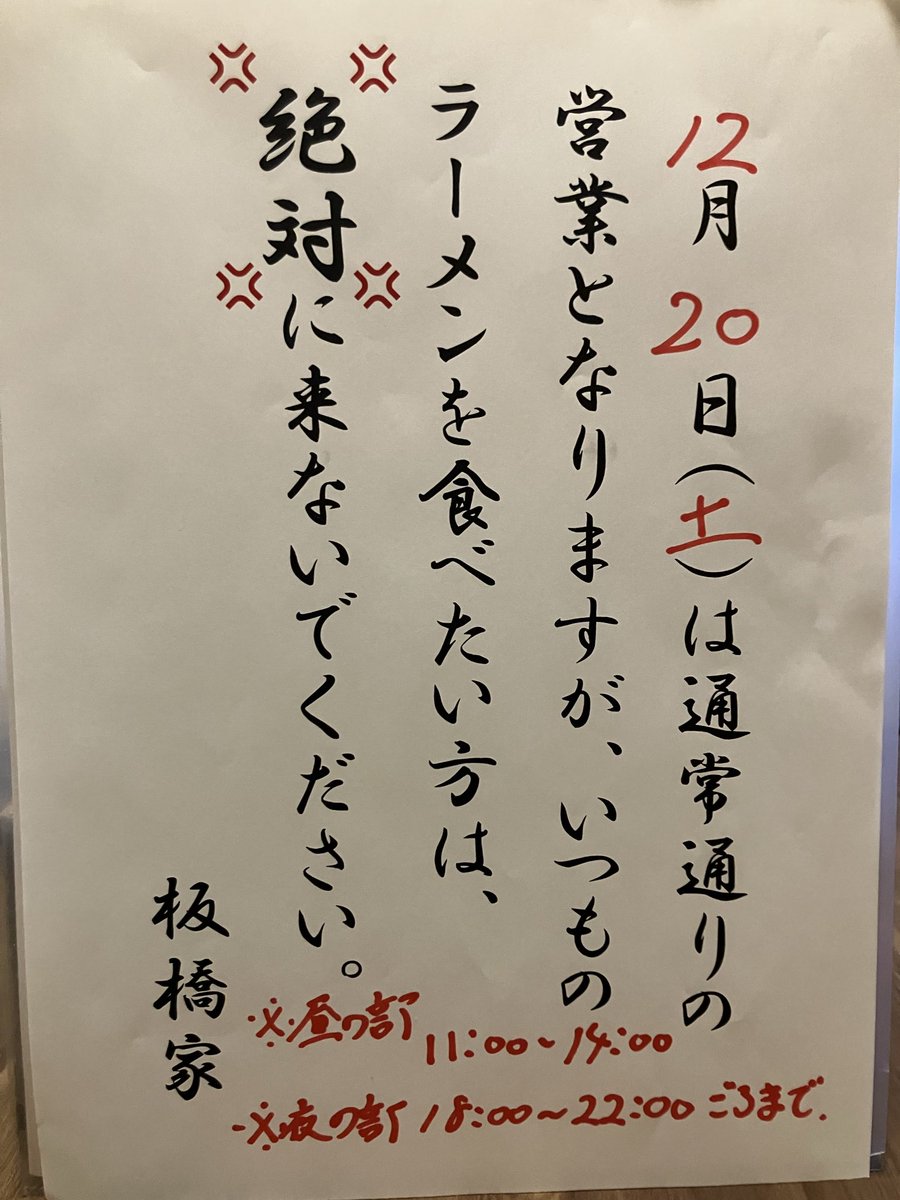 12月20日(土)は通常通りの
営業となりますが、いつもの
ラーメンを食べたい方は、
絶対に来ないでください。
板橋家
※昼の部 11:00~14:00
※夜の部 18:00~22:00ごろまで.